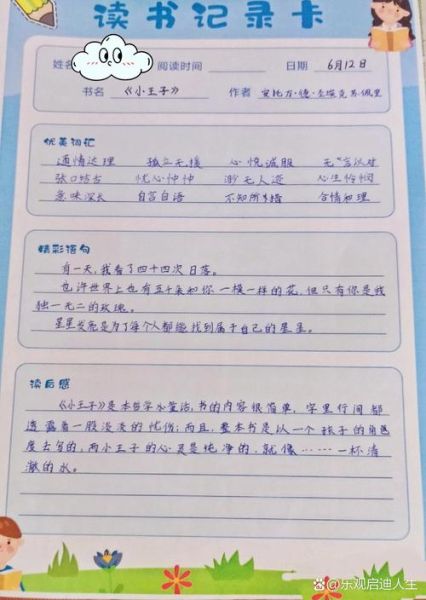 读书记录卡
姓名 阅读时间 日期 6月12日
书名 《小王子》 作者 安托万·德·圣埃克苏佩里
优美词汇
通情达理 孤立无援 心悦诚服 无言以对
张口结舌 忧心忡忡 渺无人迹 心生怜悯
意味深长 自言自语 不知所措 合情和理
精彩语句
有一天,我看了四十四次日落。
也许世界上也有五千朵和你一模一样的花,但只有你是我
独一无二的玫瑰。
星星发亮是为了每个人都能找到属于自己的星星。
读后感
《小王子》是本哲学水童话,书的内容很简单,字里行间都
透露着一股淡淡的忧伤;而且,整本书是以一个孩子的角
度去写的,而小王子的心灵是纯净的,就像……一杯清
澈的水。
乐观启迪人生